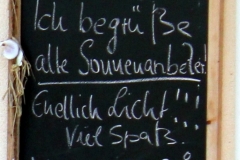 Ich begrüße
alle Sonnenanbeter
Endlich Licht!!!
Viel Spaß.